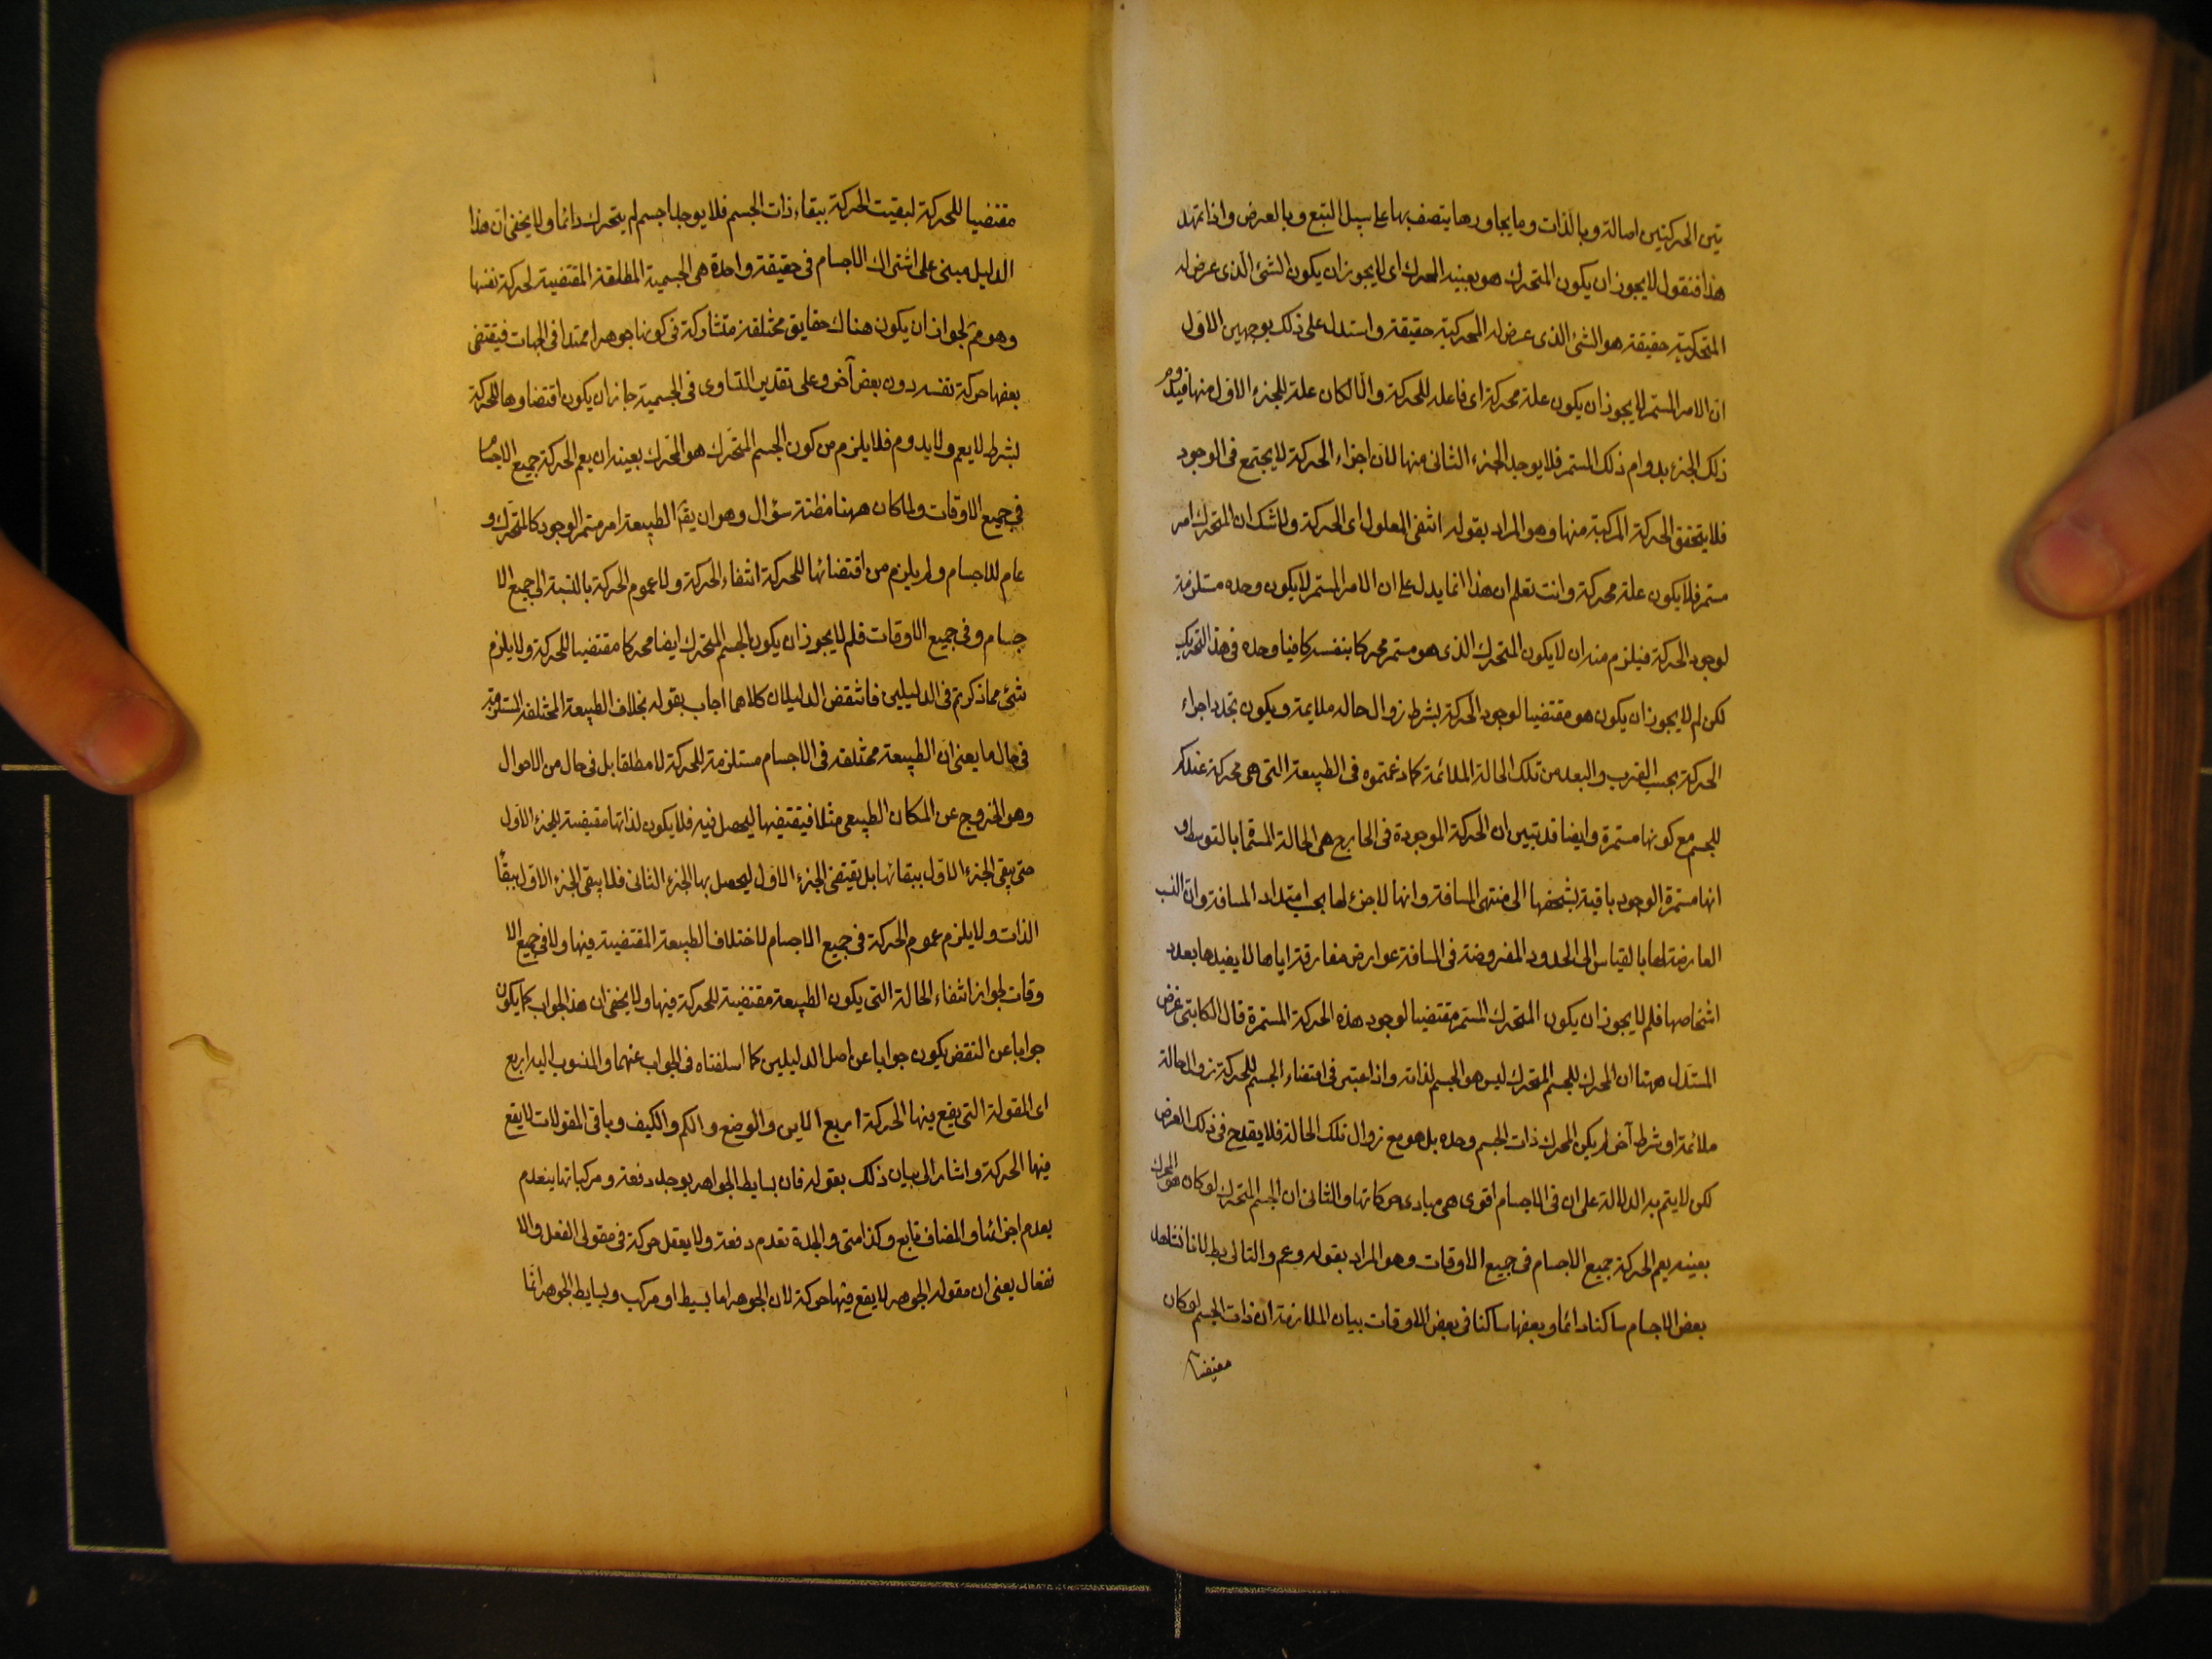 تين الحركتين اصالة وبالذات وما يجاورها يتصف بها على سبيل التبع وبالعرض واذا تمهد
هذا فنقول لا يجوز ان يكون المتحرك هو بعينه المحرك اى لا يجوز ان يكون الشئ الذى عرض له
المتحركية حقيقة هو الشئ الذى عرض له المحركية حقيقة واستدل على ذلك بوجهين الاول
ان الامر المستمر لا يجوز ان يكون علة محركة اى فاعله للحركة والا لكان علة للجزء الاول منها فيدوم
ذلك الجزء بدوام ذلك المستمر فلا يوجد الجزء الثانى منها لان اجزاء الحركة لا يجتمع فى الوجود
فلا يتحقق الحركة المركبة منها وهو المراد بقوله انتفى المعلول اى الحركة ولا شك ان المتحرك امر
مستمر فلا يكون علة محركة وانت تعلم ان هذا انما يدل على ان الامر المستمر لا يكون وحده مستلزمة
لوجود الحركة فيلزم منه ان لا يكون المتحرك الذى هو مستمر محركا بنفسه كافيا وحده فى هذا التحريك
لكن لم لا يجوز ان يكون هو مقتضيا لوجود الحركة بشرط زوال حاله ملايمة ويكون تجدد اجزاء
الحركة بحسب القرب والبعد من تلك الحالة الملائمة كما زعمتموه فى الطبيعة التى هى محركة عندكم
للجسم مع كونها مستمرة وايضا قد تبين ان الحركة الموجودة فى الخارج هى الحالة المسماة بالتوسط و
انها مستمرة الوجود باقية بشخصها الى منتهى المسافة وانها لا جزء لها بحسب امتداد المسافة وان النسب
العارضة لها بالقياس الى الحدود المفروضة فى المسافة عوارض مفارقة اياها لا يفيدها بعدد
اشخاصها فلم لا يجوز ان يكون المتحرك المستمر مقتضيا لوجود هذه الحركة المستمرة قال الكاتبى غرض
المستدل ههنا ان المحرك للجسم المتحرك ليس هو الجسم لذاته واذا اعتبر فى اقتضاء الجسم للحركة زوال حالة
ملائمة او شرط آخر لم يكن المحرك ذات الجسم وحده بل هو مع زوال تلك الحالة فلا يقدح فى ذلك الغرض
لكن لا يتم به الدلالة على ان فى الاجسام قوى هى مبادى حركاتها والثانى ان الجسم المتحرك لو كان هو المحرك
بعينه يعم الحركة جميع الاجسام فى جميع الاوقات وهو المراد بقوله وعم والتالى بط لانا نشاهد
بعض الاجسام ساكنا دائما وبعضها ساكنا فى بعض الاوقات بيان الملازمة ان ذات الجسم لو كان
مقتضيا
مقتضيا للحركة لبقيت الحركة ببقاء ذات الجسم فلا يوجد جسم لم يتحرك دائما ولا يخفى ان هذا
الدليل مبنى على اشتراك الاجسام فى حقيقة واحدة هى الجسمية المطلقة المقتضية لحركة نفسها
وهو مم لجواز ان يكون هناك حقايق مختلفة متشاركة فى كونها جوهرا ممتدا فى الجهات فيقتضى
بعضها حركة نفسه دون بعض آخر وعلى تقدير التساوى فى الجسمية جاز ان يكون اقتضاوها للحركة
بشرط لا يعم ولا يدوم فلا يلزم من كون الجسم المتحرك هو المحرك بعينه ان يعم الحركة جميع الاجسام
فى جميع الاوقات ولما كان ههنا مظنة سؤال وهو ان يق الطبيعة امر مستمر الوجود كالمتحرك و
عام للاجسام ولم يلزم من اقتضائها للحركة انتفاء الحركة ولا عموم الحركة بالنسبة الى جميع الا
جسام وفى جميع الاوقات فلم لا يجوز ان يكون الجسم المتحرك ايضا محركا مقتضيا للحركة ولا يلزم
شئ مما ذكرتم فى الدليلين فانتقض الدليلان كلاهما اجاب بقوله بخلاف الطبيعة المختلفة المستلزمة
فى حال ما يعنى ان الطبيعة مختلفة فى الاجسام مستلزمة للحركة لا مطلقا بل فى حال من الاحوال
وهو الخروج عن المكان الطبيعى مثلا فيقتضيها ليحصل فيه فلا يكون لذاتها مقتضية للجزء الاول
حتى يبقى الجزء الاول ببقائها بل تقتضى الجزء الاول ليحصل بها الجزء الثانى فلا يبقى الجزء الاول ببقاء
الذات ولا يلزم عموم الحركة فى جميع الاجسام لاختلاف الطبيعة المقتضية فيها ولا فى جميع الا
وقات لجواز انتفاء الحالة التى يكون الطبيعة مقتضية للحركة فيها ولا يخفى ان هذا الجواب كما يكون
جوابا عن النقض يكون جوابا عن اصل الدليلين كما اسلفناه فى الجواب عنهما والمنسوب اليه اربع
اى المقولة التى يقع فيها الحركة اربع الاين والوضع والكم والكيف وباقى المقولات لا يقع
فيها الحركة واشار الى بيان ذلك بقوله فان بسايط الجواهر يوجد دفعة ومركباتها ينعدم
بعدم اجزائها والمضاف تابع وكذا متى والجدة تقدم دفعة ولا يعقل حركة فى مقولى الفعل والا
نفعال يعنى ان مقوله الجوهر لا يقع فيها حركة لان الجوهر اما بسيط او مركب وبسايط الجوهر انما